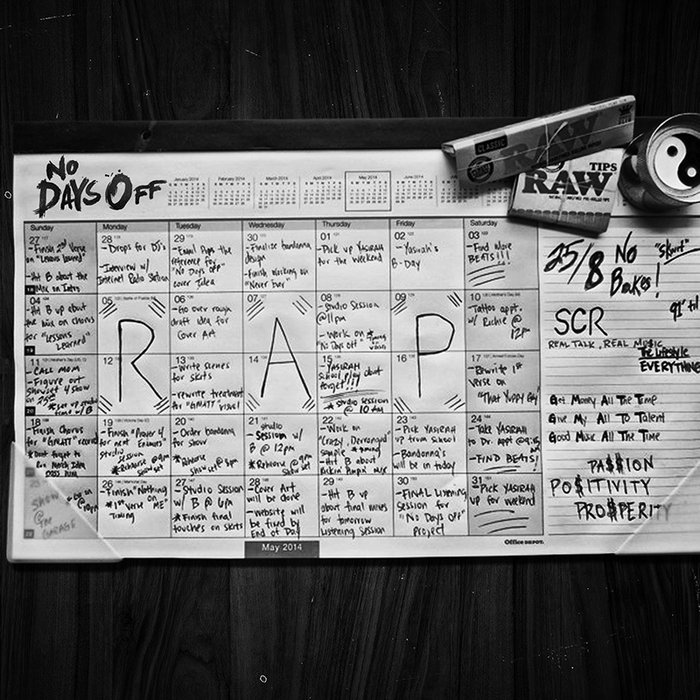 No
Days Off
January 2014
February 2014
March 2014
April 2014
May 2014
June 2014
CLASSIC
RAW
TIPS
RAW
Sunday
Monday
Tuesday
Wednesday
Thursday
Friday
Saturday
27
- Finish 2nd Verse
on "Lessons Learned"
- Hit B about the
Mix on Intro
28
- Drops for DJ's
- Interview w/
Internet Radio Station
29
- Email Pops the
reference for
"No Days Off"
cover Idea
30
- Finalize bandanna
design
- Finish Working on
"Never Bury"
01
- Pick up YASIRAH
for the weekend
02
- Yasirah's
B-Day
03
- Find More
BEATS!!!
25/8
No
Brakes!
04
- Hit B up about
the Mix on Chorus
for "Lessons
Learned"
05
R
06
- Go over rough
draft idea for
Cover Art
07
A
08
- Studio Session
@ 11pm
- Work on
"No Days Off"
09
P
10
- Tattoo appt.
w/ Richie @
12pm
SCR
91' til
REAL TALK, REAL MUSIC
The Lifestyle
EVERYTHING
11
- CALL MOM
- Figure out
Showset 4 show
on 25th
12
13
- Write scenes
for skits
- rewrite treatment
for "GMATT" visual
14
15
- YASIRAH
School play don't
forget!!!
* Studio Session
@ 10 AM
16
17
- Rewrite 1st
Verse on
"That Yuppy Guy"
Get Money All The Time
Give My All To Talent
Good Music All The Time
18
- Chorus
for "GMATT" record
* Don't forget to
19
- Finish "Prayer 4
my Enemies"
Studio
session
* Rehearse @ 9pm
20
- Order bandanna
for show
* Rehearse
Show set @ 8pm
21
- Studio
Session w/
B @ 12pm
* Rehearse @ 9pm
Show set
22
- Work on
"Crazy, Deranged"
sample
- Hit B about
23
- Pick YASIRAH
up from school
- Bandanna's
will be in today
24
- Take YASIRAH
to Dr. appt
- FIND BEATS!
PA$$ION
PO$ITIVITY
PRO$PERITY
25
SHOW
@ THE
GARAGE
26
- Finish "Nothing
on ME"
* 1st Verse
Timing
27
- Studio Session
w/ B @ 6pm
* Finish final
touches on skits
28
- Cover Art
will be done
- website will
be fixed by
End of Day
29
- Hit B up
about final mixes
for tomorrow
Listening Session
30
- FINAL Listening
Session for
"No Days Off"
Project
31
- Pick YASIRAH
up for weekend
May 2014
Office DEPOT